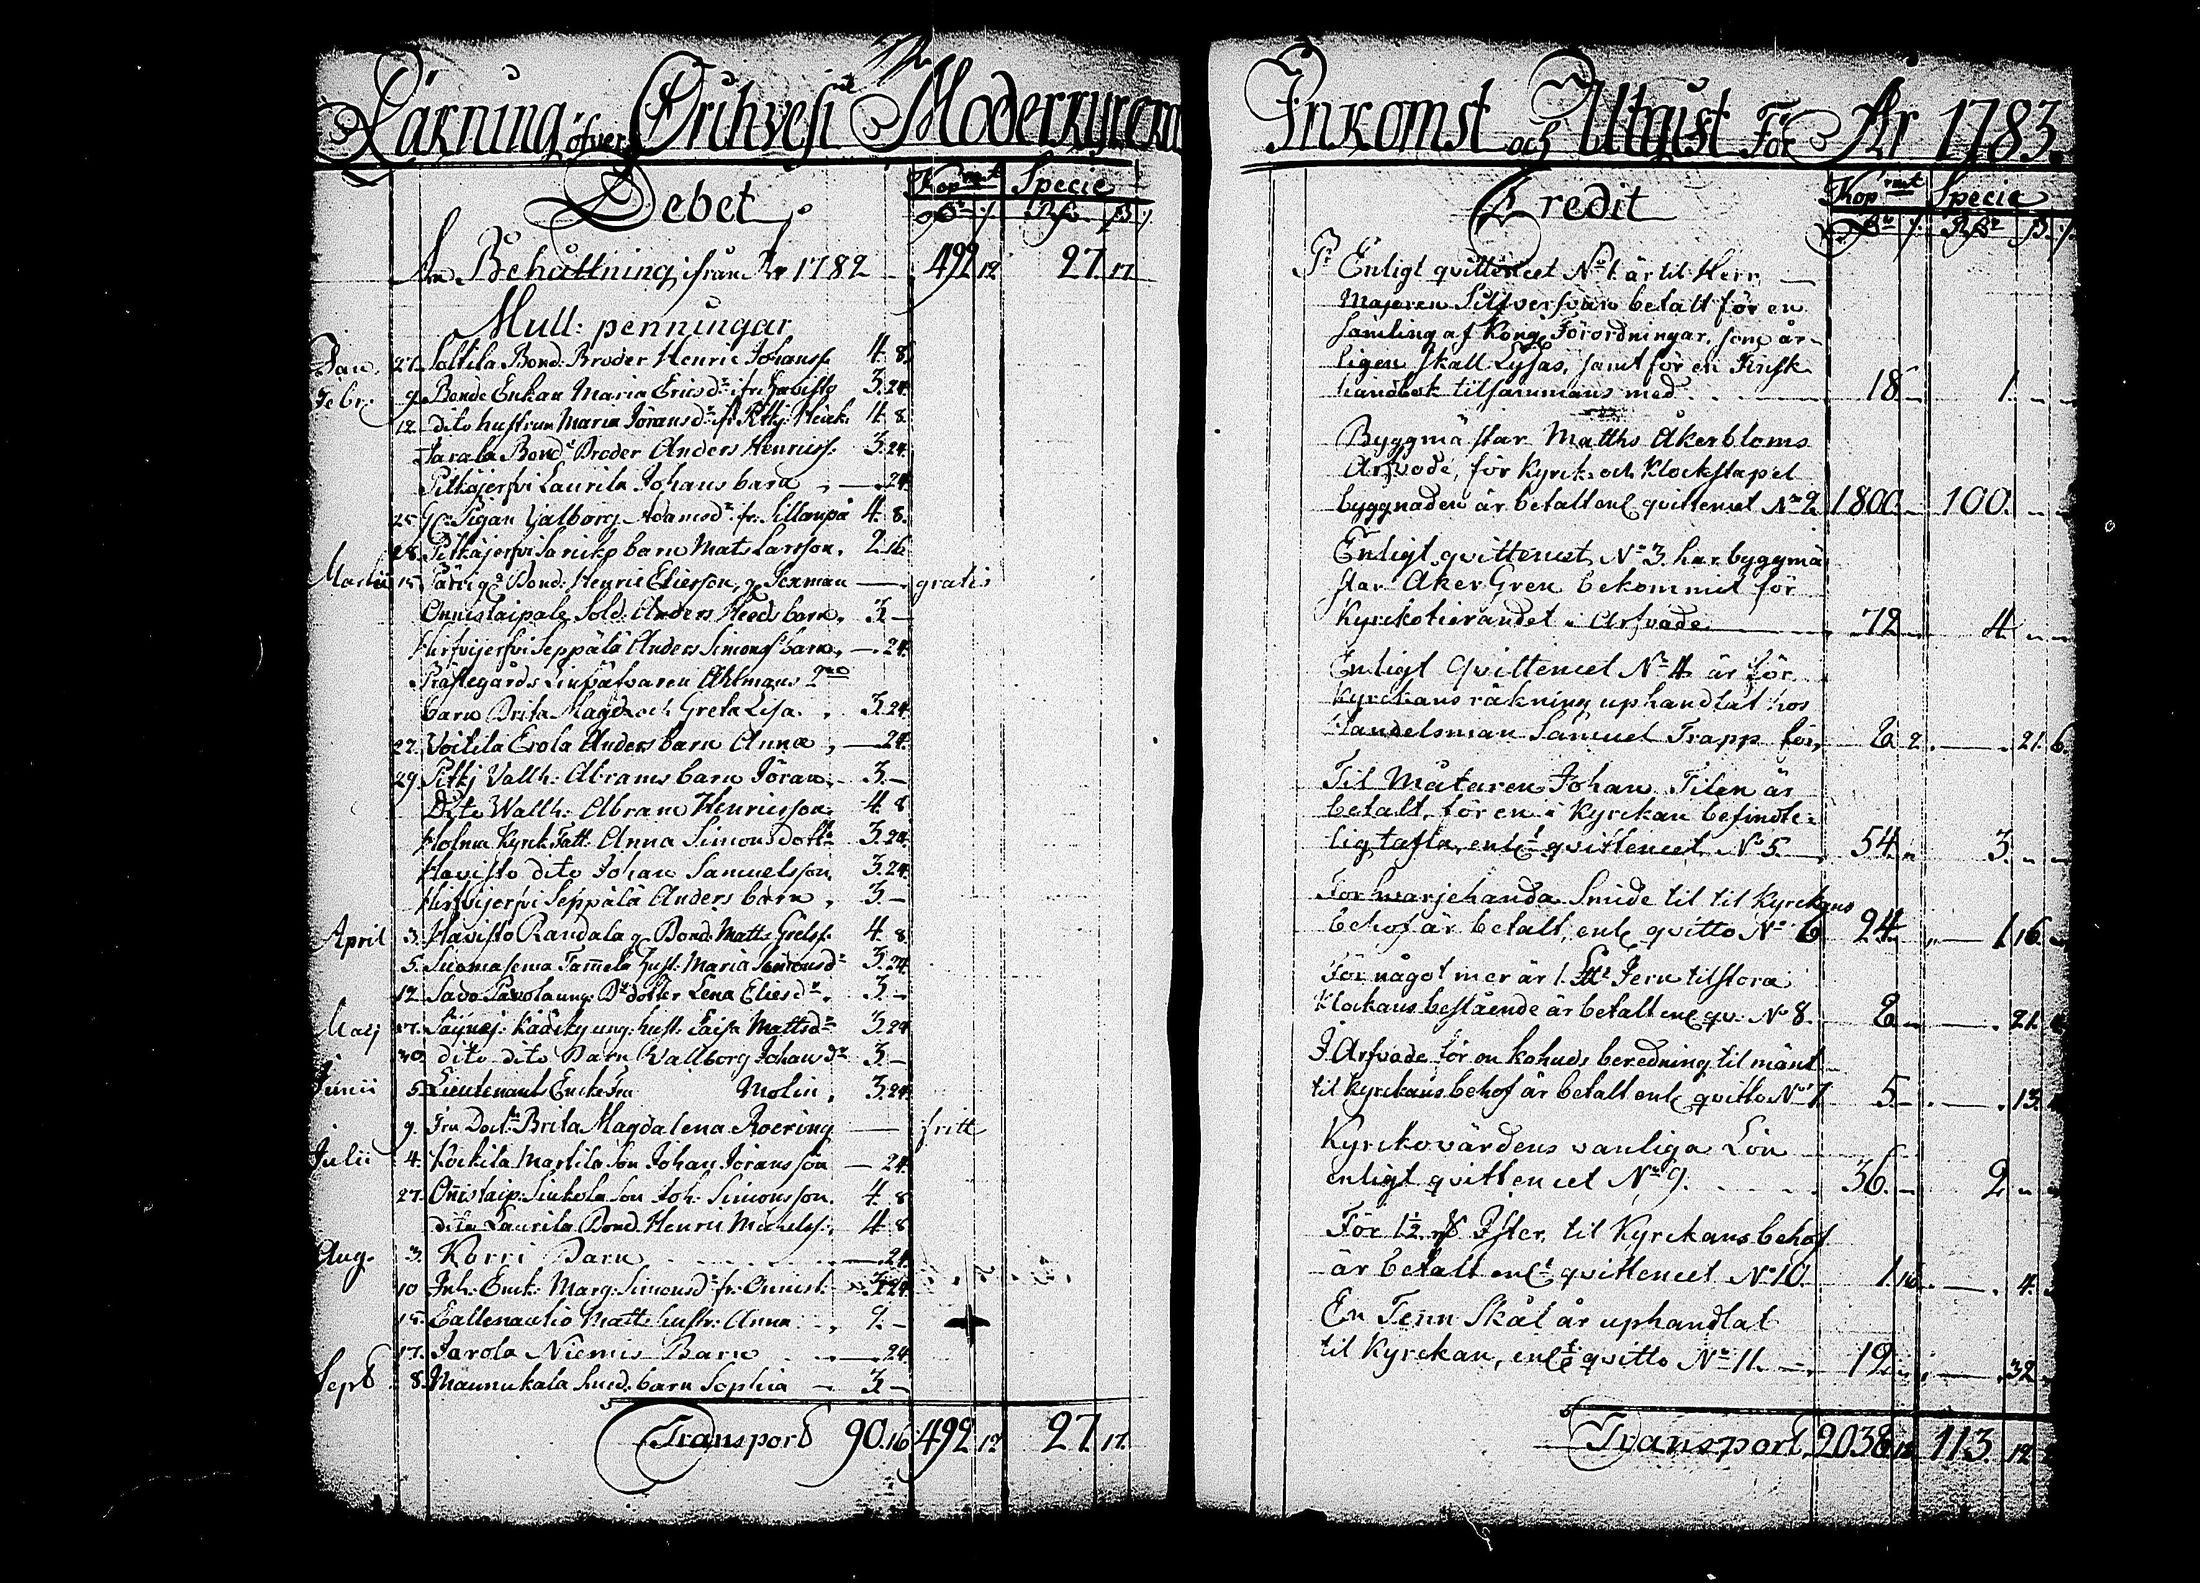 Räkning öfver Orihvesi Moderkyrckio
Debet
Kopmt Specie
An Behållning ifrån År 1782 492 12 27. 17.
Mull: penningar
Jan. 27. Soltila Bond: Broder Henric Johanss. 4. 8.
Febr. 9. Bonde Enkan Maria Ericsdr ifr. Havisto 3. 24.
12. dito hustrun Maria Jöransdr 4. 8
Jarala Bond. Broder Anders Henricss. 3. 24.
Pitkäjerfvi Laurila Johans barn 24.
25. Pigan Valborg Adamsdr fr. Sillanpä 4. 8.
28. Pitkäjerfvi barn Mats Larsson. 2. 16.
Martii 15. Bond. Henric Eliesson, g. Sexman gratis
Onnistaipale Sold. Anders Heeds barn. 3. —
Hirfvijerfvi Seppälä Anders Simonss barn. — 24.
Prästegårds Ahlmans 2ne
barn Brita Magd. och Greta Lisa. 3. 24.
22. Voitila Erola Anders barn Anna — 24.
29. Pitkj Vallh: Abrams barn Jöran. 3. —
Dito Wallh: Abram Henricsson. 4. 8
Holma Kyrck Fatt. Anna Simonsdottr 3. 24.
Havisto dito Johan Samuelsson. 3. 24.
Hirfvijerfvi Seppälä Anders barn 3. —
April 3. Havisto Randala g. Bond. Matts Grelss. 4. 8
5. Suomasema Tam̄ela hust. Maria Simonsdr 3. 24
12. Sado Pavola ung. Dr dotter Lena Eliesdr 3. —
Maij 17. Säynej. Kääcky ung. hust. Caisa Mattsdr 3. 24
30. dito dito Barn Wallborg Johansdr 3. —
Junii 5. Lieutenants Encke Fru Molin 3. 24.
9. Fru Doct. Brita Magdalena Roering — fritt
Julii 4. Kockila Martila Son Johan Joransson — 24.
27. Onistaip. Sinkola Son Joh. Simonsson. 4. 8
dito Laurila Bond. Henric Michelss. 4. 8
Aug. 3. Korri Barn 24.
10 Inh. Enck. Marg. Simonsd. fr. Onnist. 3. 24.
15. Matts hustr. Anna 9. —
17. Jarola Niemis Barn 24.
Sept 8. Männukala Smed. barn Sophia 3. —
Transport 90. 16. 492 12 27. 17.
Inkomst och Utgift För År 1783.
Credit
Kopmt Specie
Pr Enligt qvittencet No 1 är til Herr
Majoren Silfversvan betalt för en
samling af Kongl. Förordningar, som år-
ligen skall Lysas, samt för en Finsk
handbok tilsammans med 18 — 1. — —
Byggmästar Matths Åkerbloms
Arfvode, för Kyrck- och Klockstapel
byggnaden är betalt enl. qvittencet No 2. 1800. — 100. — —
Enligt qvittencet No 3. har byggmä
star Åker Gren bekommit för
Kyrckotierandet i Arfvode 72 4. — —
Enligt Qvittencet No 4 är för
Kyrckans räkning uphandlat hos
Handelsman Samuel Trapp för, 8 2. — 21. 6.
Til Målaren Johan Tilen är
betalt, för en i Kyrckan befindte-
lig tafla, enl. qvittencet, No 5. 54. 3. — —
För hvarjehanda Smide til til Kyrckans
behof är betalt, enl. qvitto No 6 24. — 1. 16.
För något mer är 1. Jern til stora
Klockans bestående är betalt enl. qv. No 8. 8 — 21.
I Arfvode för en kohuds beredning til
til Kyrckans behof är betalt enl. qvitto No 7 5. — 13.
Kyrckovärdens vanliga Lön
enligt qvittencet No 9. 36. — 2
För 1½ ℔ Ister, til Kyrckans behof
är betalt enl. qvittencet No 10. 1 16 — 4.
En Ten̄ Skål är uphandlat
til Kyrckan, enl. qvitto No 11. 12 — 32
Transport 2038 12 113. 12